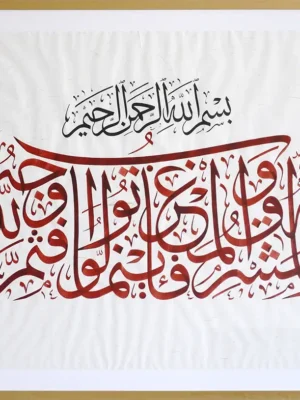 بسم الله الرحمن الرحيم
المشرق والمغرب فأينما تولوا فثم وجه الله